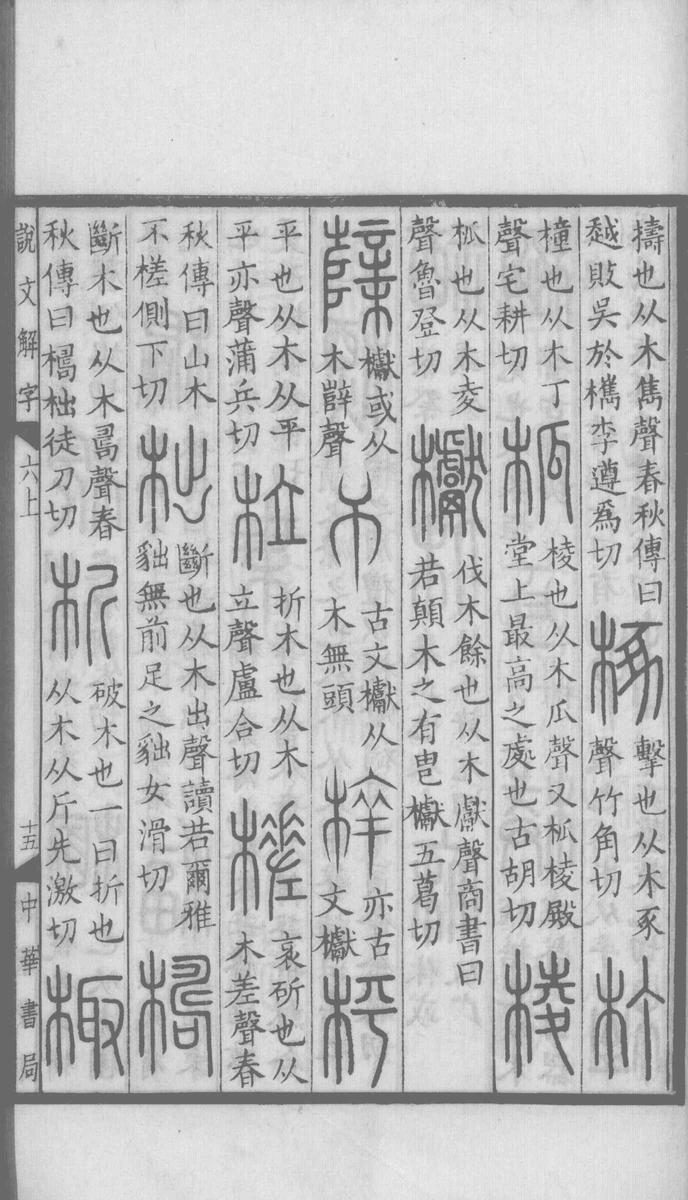 擣也从木雋聲春秋傳曰越敗吳於檇李遵爲切 椓 擊也从木豖聲竹角切 朾
橦也从木丁聲宅耕切 柧 棱也从木瓜聲又柧棱殿堂上最高之處也古胡切 棱
柧也从木夌聲魯登切 𣡌 伐木餘也从木獻聲商書曰若顛木之有㽕𣡌五葛切
櫱 𣡌或从木辥聲 𣎴 古文𣡌从木無頭 𣖂 亦古文𣡌 枰
平也从木从平平亦聲蒲兵切 柆 折木也从木立聲盧合切 槎 衺斫也从木差聲春
秋傳曰山木不槎側下切 柮 斷也从木出聲讀若爾雅貀無前足之貀女滑切 檮
斷木也从木𠷎聲春秋傳曰檮柮徒刀切 析 破木也一曰折也从木从斤先激切 棷
說文解字 六上 十五 中華書局